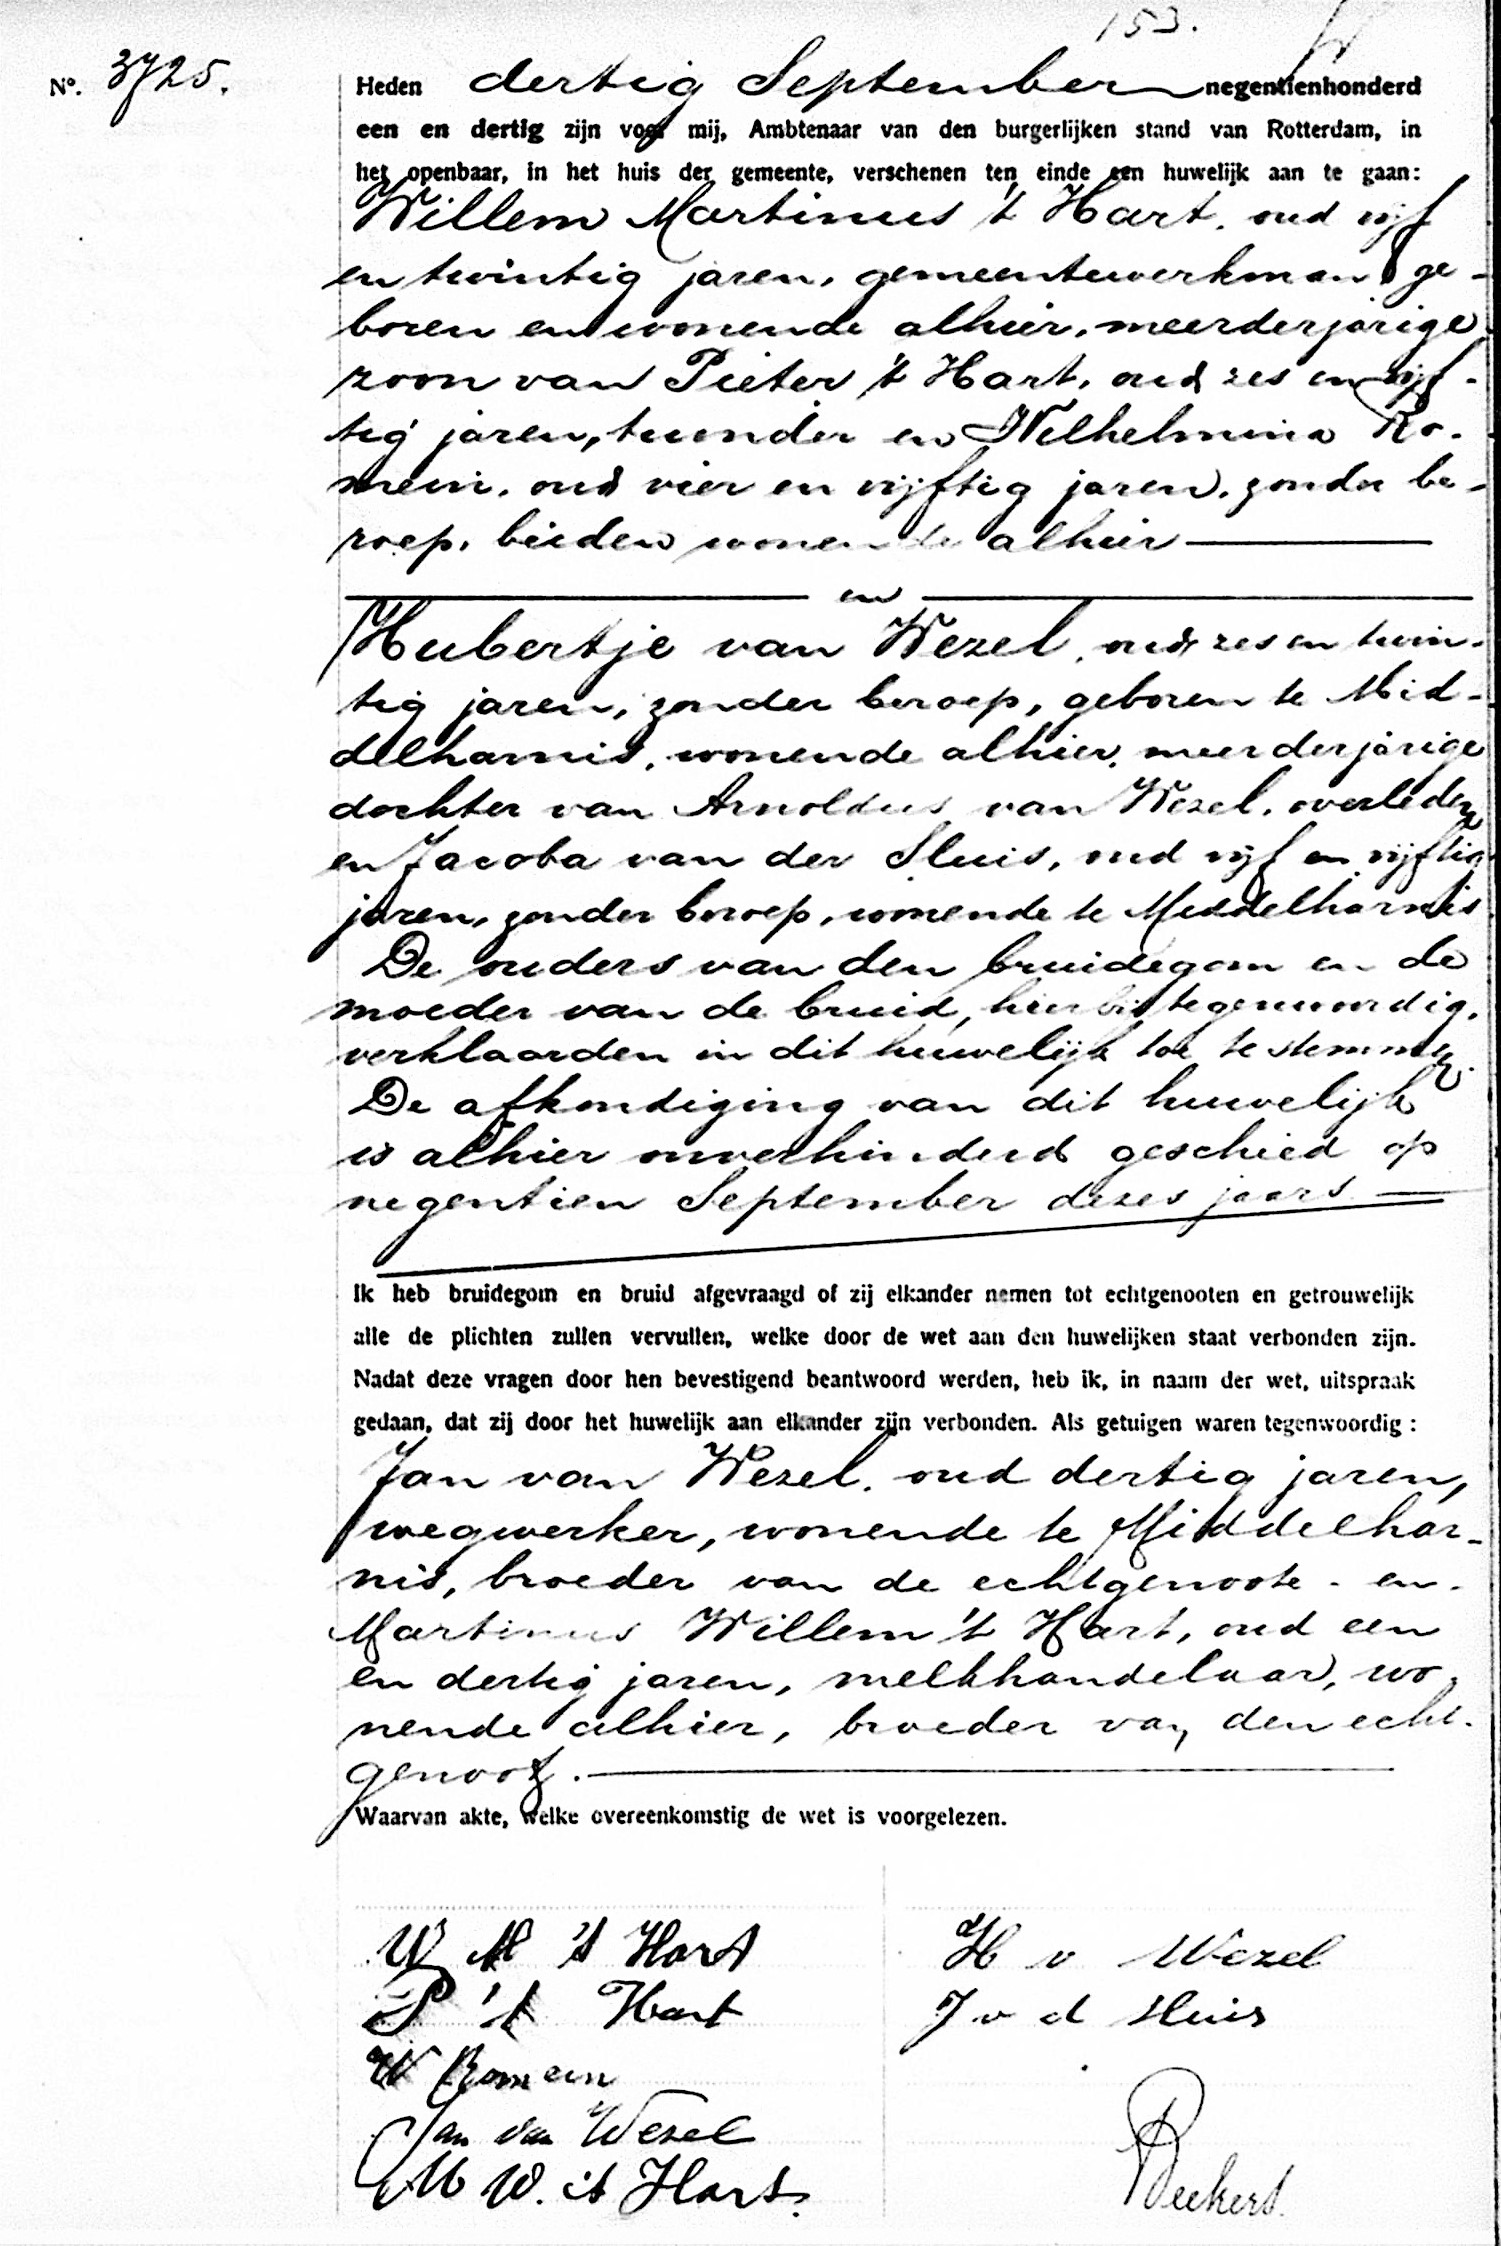 153.
Nº. 3725.
Heden dertig September negentienhonderd
een en dertig zijn voor mij, Ambtenaar van den burgerlijken stand van Rotterdam, in
het openbaar, in het huis der gemeente, verschenen ten einde een huwelijk aan te gaan:
Willem Martinus 't Hart, oud vijf
en twintig jaren, gemeentewerkman, ge-
boren en wonende alhier, meerderjarige
zoon van Pieter 't Hart, oud zes en vijf-
tig jaren, tuinder en Wilhelmina Ro-
mein, oud vier en vijftig jaren, zonder be-
roep, beiden wonende alhier
en
Hubertje van Wezel, oud zes en twin-
tig jaren, zonder beroep, geboren te Mid-
delharnis, wonende alhier, meerderjarige
dochter van Arnoldus van Wezel, overleden
en Jacoba van der Sluis, oud vijf en vijftig
jaren, zonder beroep, wonende te Middelharnis.
De ouders van den bruidegom en de
moeder van de bruid, hierbij tegenwoordig,
verklaarden in dit huwelijk toe te stemmen.
De afkondiging van dit huwelijk
is alhier onverhinderd geschied op
negentien September dezes jaars
Ik heb bruidegom en bruid afgevraagd of zij elkander nemen tot echtgenooten en getrouwelijk
alle de plichten zullen vervullen, welke door de wet aan den huwelijken staat verbonden zijn.
Nadat deze vragen door hen bevestigend beantwoord werden, heb ik, in naam der wet, uitspraak
gedaan, dat zij door het huwelijk aan elkander zijn verbonden. Als getuigen waren tegenwoordig:
Jan van Wezel, oud dertig jaren,
wegwerker, wonende te Middelhar-
nis, broeder van de echtgenoote - en -
Martinus Willem 't Hart, oud een
en dertig jaren, melkhandelaar, wo-
nende alhier, broeder van den echt-
genoot.
Waarvan akte, welke overeenkomstig de wet is voorgelezen.
W M 't Hart
H v Wezel
P 't Hart
J v d Sluis
W Romein
Jan van Wezel
M W. 't Hart.